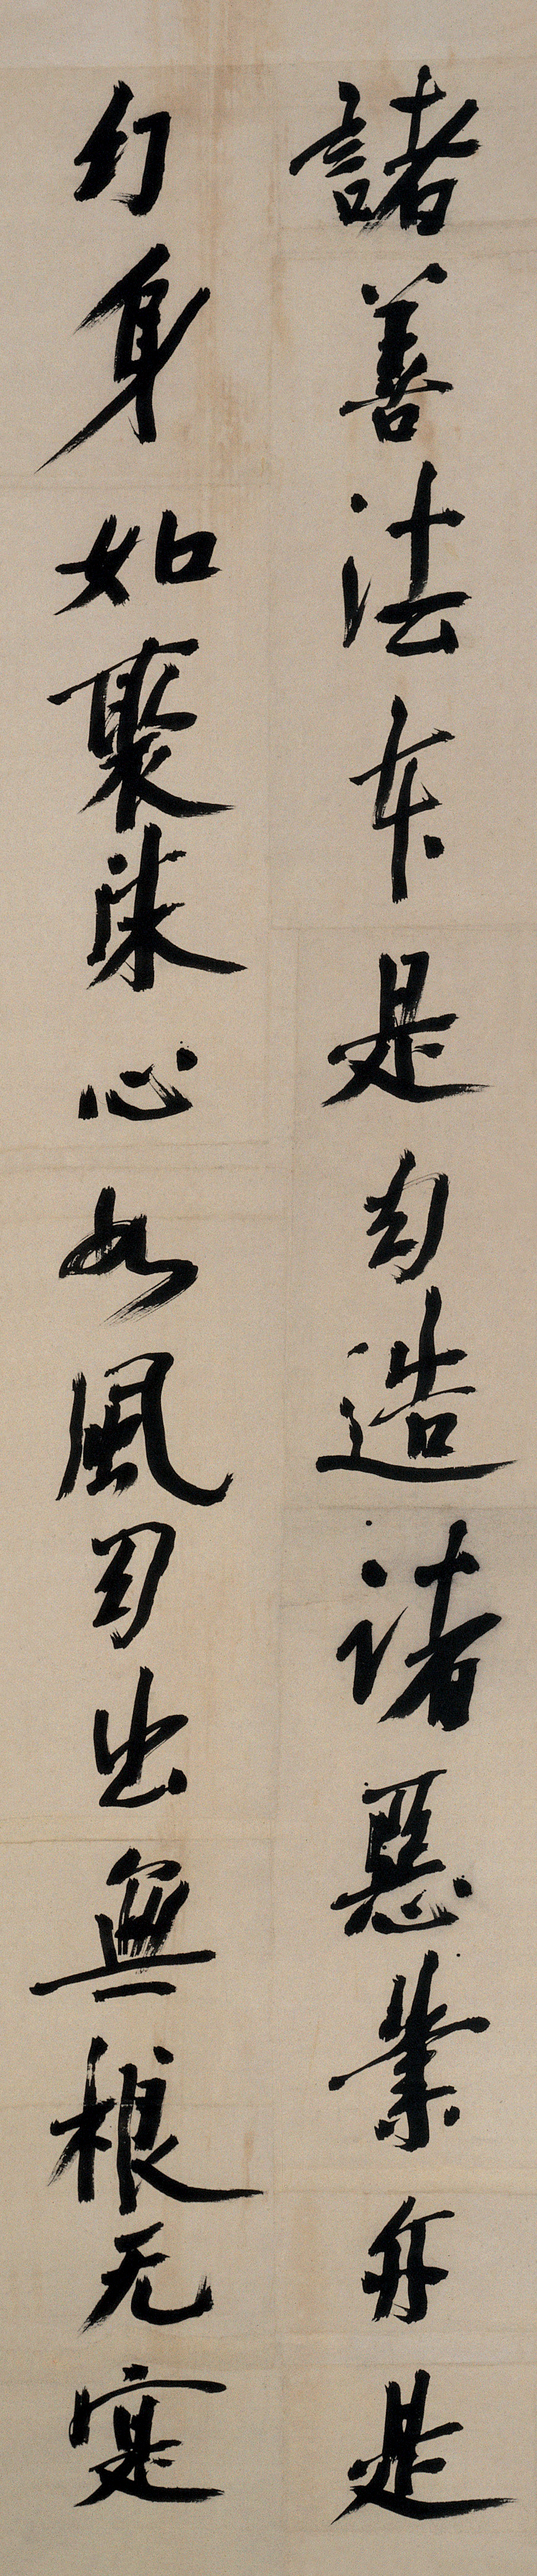 諸善法本是幻造諸惡業亦是
幻身如聚沫心如風幻出無根无寔